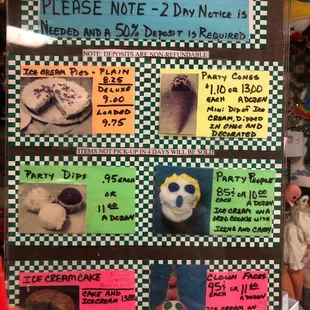 PLEASE NOTE - 2 DAY NOTICE IS
NEEDED AND A 50% DEPOSIT IS REQUIRED
NOTE: DEPOSITS ARE NON-REFUNDABLE
ICE CREAM PIES - PLAIN
8.25
DELUXE
9.00
LOADED
9.75
PARTY CONES
$1.10 OR 13.00
EACH A DOZEN
MINI DIP OF ICE
CREAM, DIPPED
IN CHOC AND
DECORATED
ITEMS NOT PICK-UP IN 4 DAYS WILL BE SOLD
PARTY DIPS .95 EACH
OR
11.00
A DOZEN
PARTY PEOPLE
85¢ OR 10.00
EACH A DOZEN
ICE CREAM ON A
OREO COOKIE WITH
ICING AND CANDY.
ICE CREAM CAKE
CAKE AND
ICE CREAM
CLOWN FACES
95¢ OR 11.00
EACH A DOZEN
ICE CREAM ON